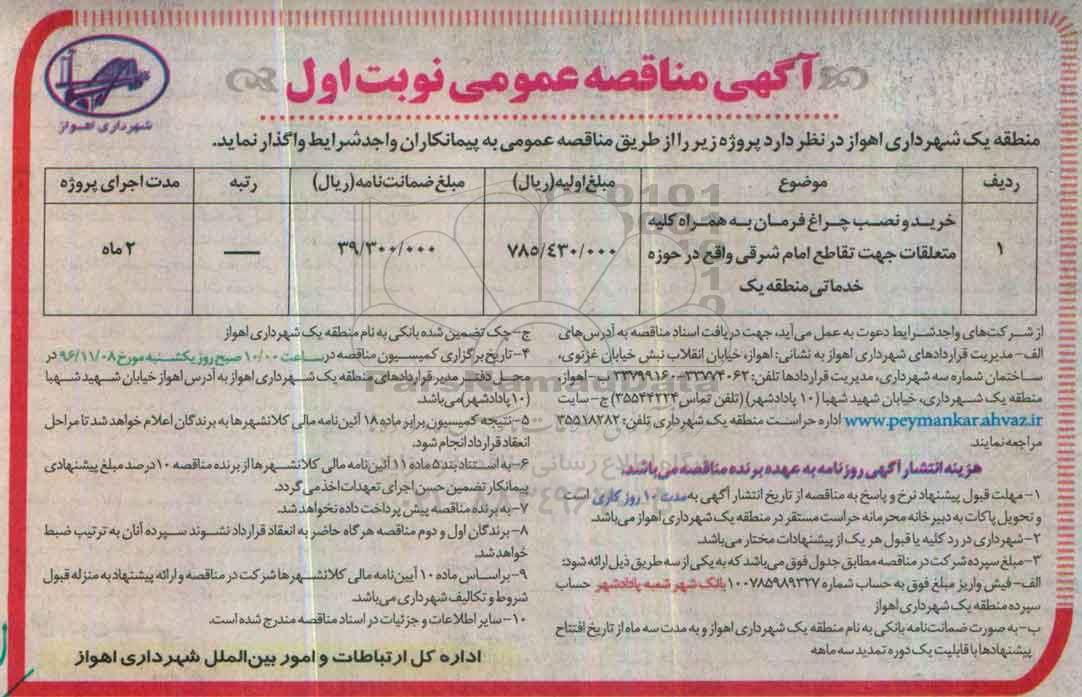 آگهی مناقصه عمومی نوبت اول
شهرداری اهواز
منطقه یک شهرداری اهواز در نظر دارد پروژه زیر را از طریق مناقصه عمومی به پیمانکاران واجد شرایط واگذار نماید.
ردیف موضوع مبلغ اولیه(ریال) مبلغ ضمانت نامه(ریال) رتبه مدت اجرای پروژه
خرید و نصب چراغ فرمان به همراه کلیه
۱ متعلقات جهت تقاطع امام شرقی واقع در حوزه ۷۸۵/٤۳۰/۰۰۰ ۳۹/۳۰۰/۰۰۰ — ۲ ماه
خدماتی منطقه یک
از شرکت‌های واجد شرایط دعوت به عمل می‌آید، جهت دریافت اسناد مناقصه به آدرس‌های
الف- مدیریت قراردادهای شهرداری اهواز به نشانی: اهواز، خیابان انقلاب نبش خیابان غزنوی،
ساختمان شماره سه شهرداری، مدیریت قراردادها تلفن: ۳۳۷۷۴۰۶۲-۳۳۷۷۹۹۱۶۰ ب-اهواز-
منطقه یک شهرداری، خیابان شهید شهبا (۱۰ پادادشهر) (تلفن تماس ۳۵۵۴۴۲۲۴) ج- سایت
www.peymankar.ahvaz.ir اداره حراست منطقه یک شهرداری تلفن: ۳۵۵۱۸۲۸۲
مراجعه نمایند.
هزینه انتشار آگهی روزنامه به عهده برنده مناقصه می‌باشد.
۱- مهلت قبول پیشنهاد نرخ و پاسخ به مناقصه از تاریخ انتشار آگهی به مدت ۱۰ روز کاری است
و تحویل پاکات به دبیرخانه محرمانه حراست مستقر در منطقه یک شهرداری اهواز می‌باشد.
۲- شهرداری در رد کلیه یا قبول هر یک از پیشنهادات مختار می‌باشد.
۳- مبلغ سپرده شرکت در مناقصه مطابق جدول فوق می‌باشد که به یکی از سه طریق ذیل ارائه شود:
الف- فیش واریز مبلغ فوق به حساب شماره ۱۰۰۷۸۵۹۸۹۲۲۷ بانک شهر شعبه پادادشهر حساب
سپرده منطقه یک شهرداری اهواز
ب- به صورت ضمانت‌نامه بانکی به نام منطقه یک شهرداری اهواز و به مدت سه ماه از تاریخ افتتاح
پیشنهادها با قابلیت یک دوره تمدید سه ماهه
ج- چک تضمین شده بانکی به نام منطقه یک شهرداری اهواز
۴- تاریخ برگزاری کمیسیون مناقصه در ساعت ۱۰/۰۰ صبح روز یکشنبه مورخ ۹۶/۱۱/۰۸ در
محل دفتر مدیر قراردادهای منطقه یک شهرداری اهواز به آدرس اهواز خیابان شهید شهبا
(۱۰ پادادشهر) می‌باشد.
۵- نتیجه کمیسیون برابر ماده ۱۸ آئین‌نامه مالی کلانشهرها به برندگان اعلام خواهد شد تا مراحل
انعقاد قرارداد انجام شود.
۶- به استناد بند ۵ ماده ۱۱ آئین‌نامه مالی کلانشهرها از برنده مناقصه ۱۰ درصد مبلغ پیشنهادی
پیمانکار تضمین حسن اجرای تعهدات اخذ می‌گردد.
۷- به برنده مناقصه پیش پرداخت داده نخواهد شد.
۸- برندگان اول و دوم مناقصه هرگاه حاضر به انعقاد قرارداد نشوند سپرده آنان به ترتیب ضبط
خواهد شد.
۹- براساس ماده ۱۰ آیین‌نامه مالی کلانشهرها شرکت در مناقصه و ارائه پیشنهاد به منزله قبول
شروط و تکالیف شهرداری می‌باشد.
۱۰- سایر اطلاعات و جزئیات در اسناد مناقصه مندرج شده است.
اداره کل ارتباطات و امور بین‌الملل شهرداری اهواز
ParsNamadData